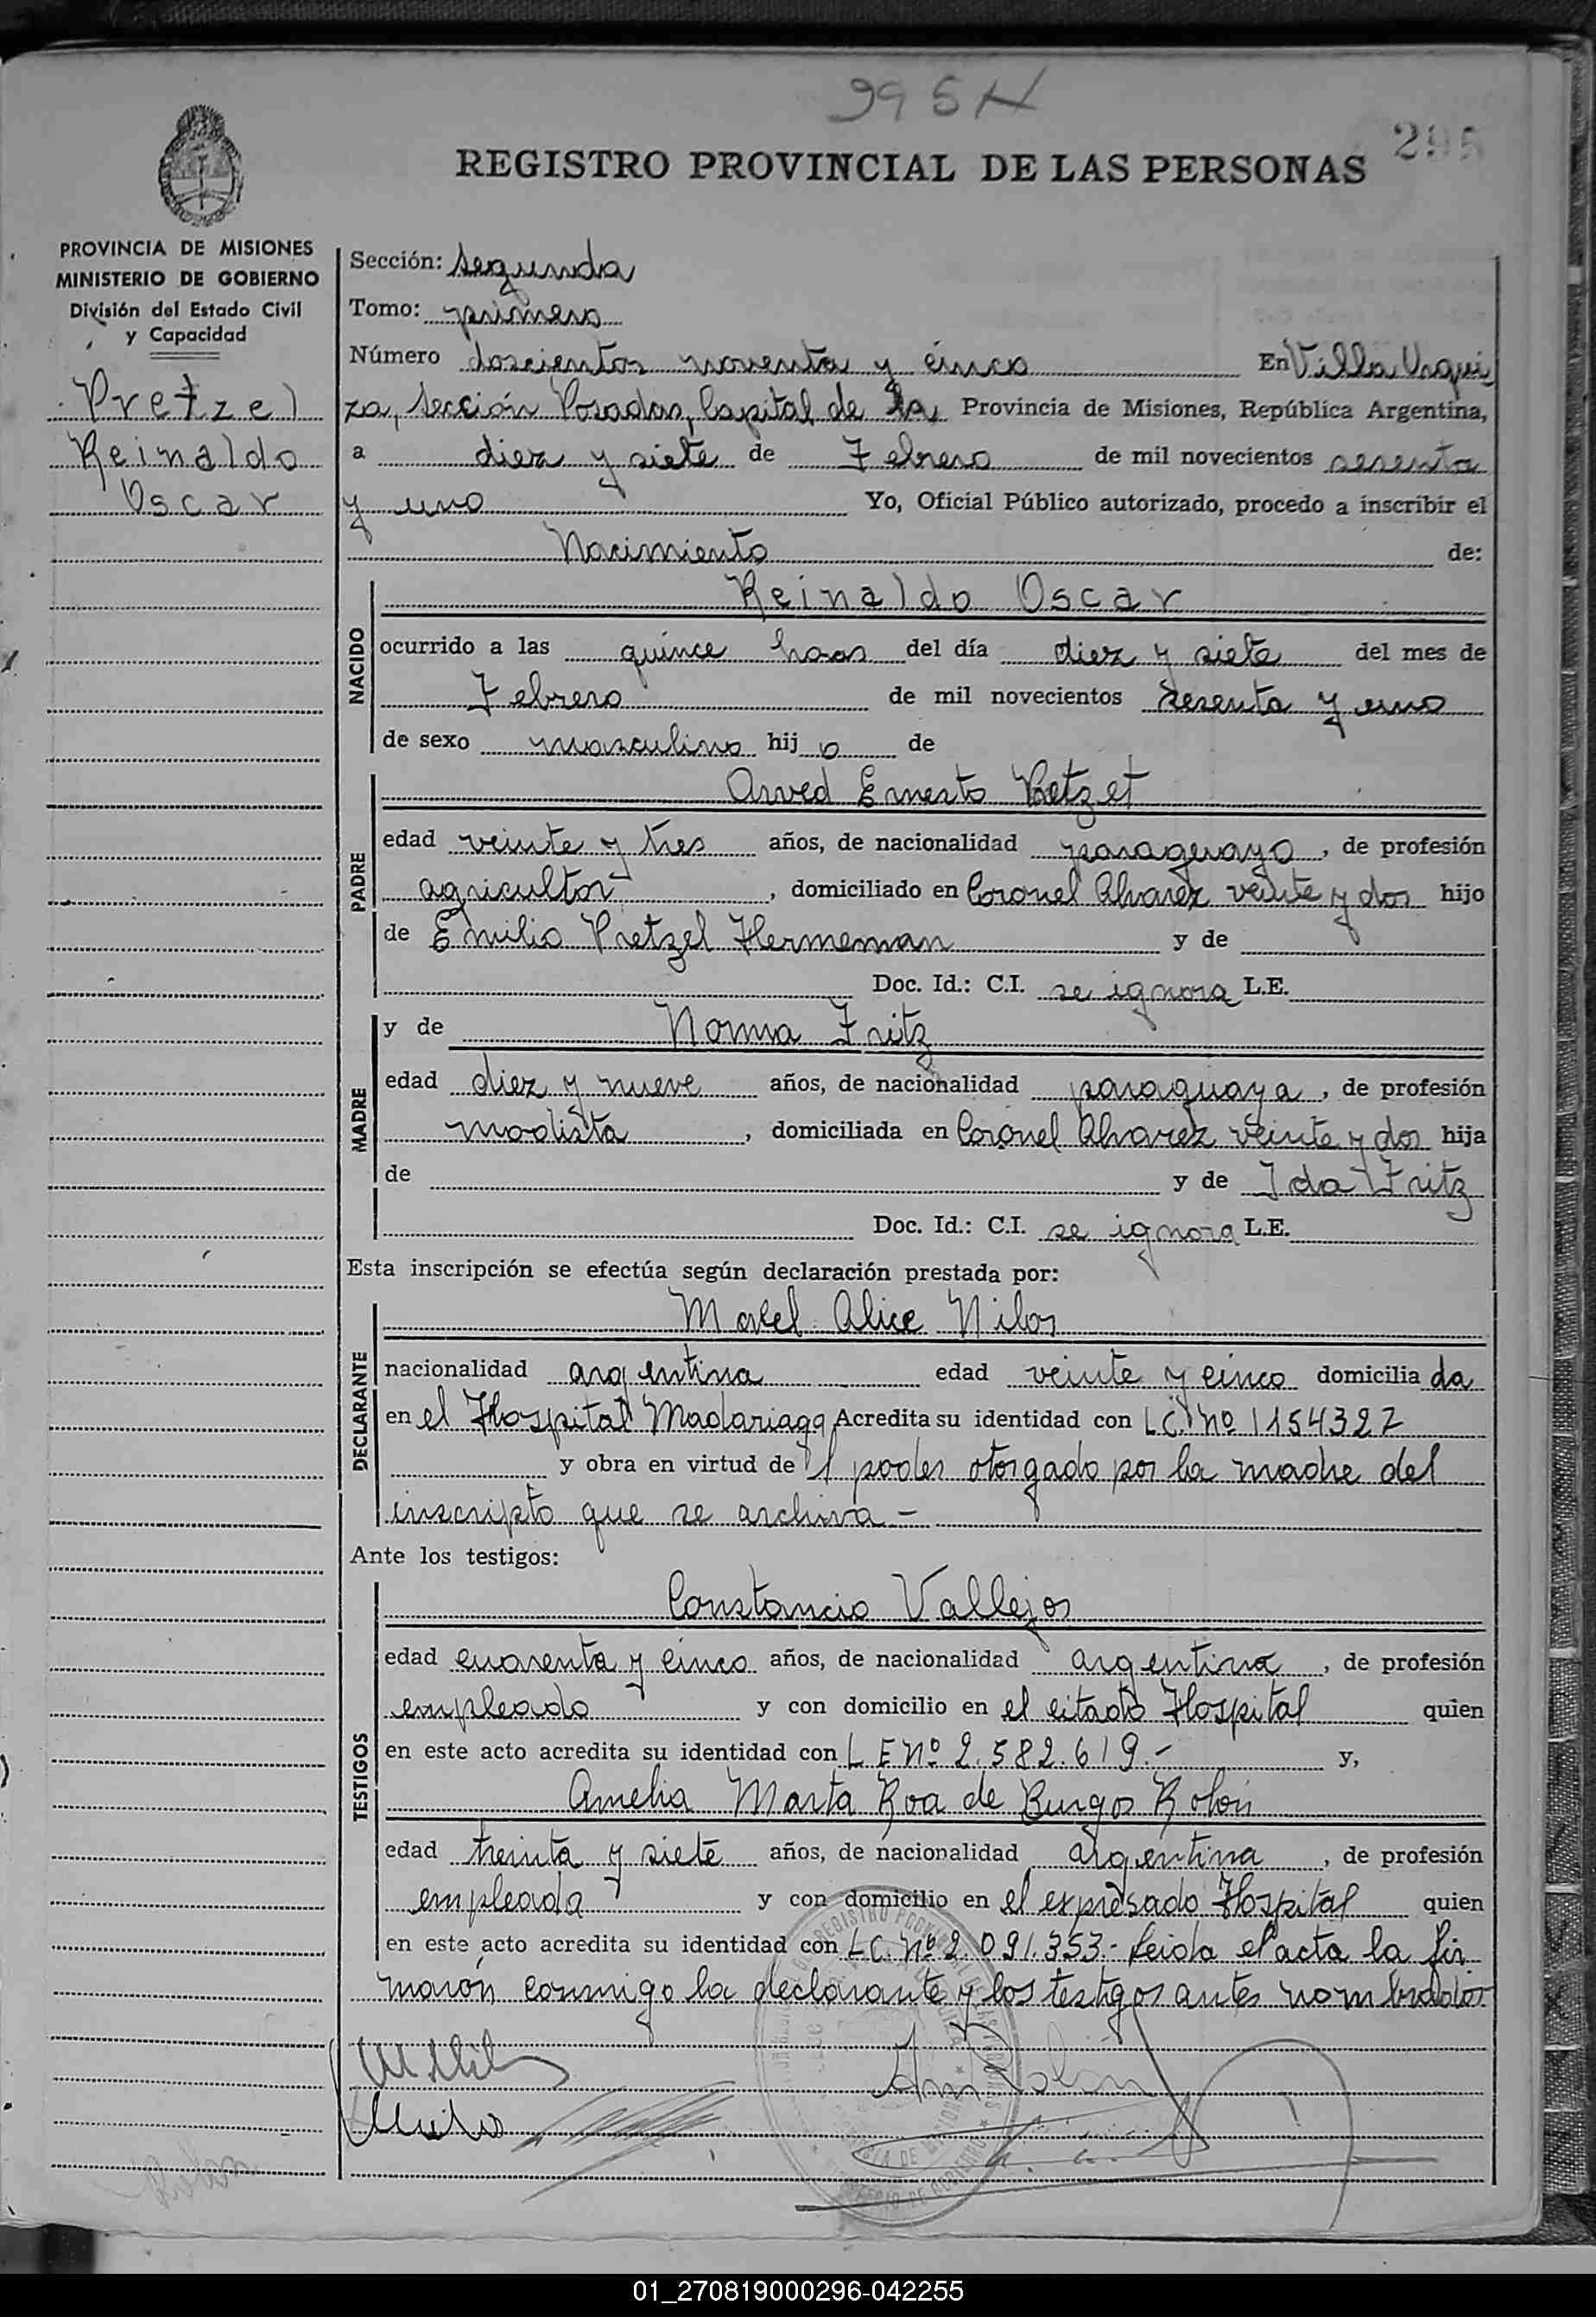 995N
295
REGISTRO PROVINCIAL DE LAS PERSONAS
PROVINCIA DE MISIONES
MINISTERIO DE GOBIERNO
División del Estado Civil
y Capacidad
Pretzel
Reinaldo
Oscar
Sección: segunda
Tomo: primero
Número doscientos noventa y cinco En Villa Urqui
za, Sección Posadas, Capital de la Provincia de Misiones, República Argentina,
a diez y siete de Febrero de mil novecientos sesenta
y uno Yo, Oficial Público autorizado, procedo a inscribir el
Nacimiento de:
NACIDO
Reinaldo Oscar
ocurrido a las quince horas del día diez y siete del mes de
Febrero de mil novecientos sesenta y uno
de sexo masculino hijo de
PADRE
Arved Ernesto Pretzel
edad veinte y tres años, de nacionalidad paraguaya, de profesión
agricultor, domiciliado en Coronel Alvarez veinte y dos hijo
de Emilio Pretzel Hermeman y de
Doc. Id.: C.I. se ignora L.E.
MADRE
y de Norma Fritz
edad diez y nueve años, de nacionalidad paraguaya, de profesión
modista, domiciliada en Coronel Alvarez veinte y dos hija
de y de Ida Fritz
Doc. Id.: C.I. se ignora L.E.
Esta inscripción se efectúa según declaración prestada por:
DECLARANTE
Mabel Alice Nilos
nacionalidad argentina edad veinte y cinco domiciliada
en el Hospital Madariaga Acredita su identidad con L.C. Nº 1154327
y obra en virtud del poder otorgado por la madre del
inscripto que se archiva -
Ante los testigos:
TESTIGOS
Constancio Vallejos
edad cuarenta y cinco años, de nacionalidad argentina, de profesión
empleado y con domicilio en el citado Hospital quien
en este acto acredita su identidad con L E Nº 2.582.619.- y,
Amelia Marta Roa de Burgos Rolón
edad treinta y siete años, de nacionalidad argentina, de profesión
empleada y con domicilio en el expresado Hospital quien
en este acto acredita su identidad con L.C. Nº 2.091.353.- Leida el acta la fir
maron conmigo la declarante y los testigos antes nombrados
01_270819000296-042255